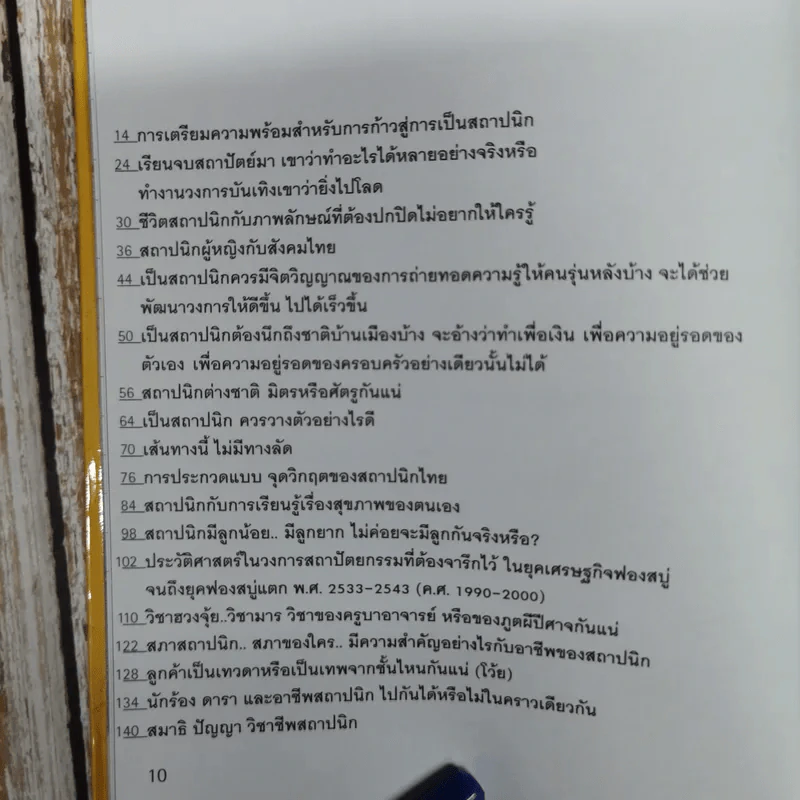 14 การเตรียมความพร้อมสำหรับการก้าวสู่การเป็นสถาปนิก
24 เรียนจบสถาปัตย์มา เขาว่าทำอะไรได้หลายอย่างจริงหรือ
ทำงานวงการบันเทิงเขาว่ายิ่งไปโลด
30 ชีวิตสถาปนิกกับภาพลักษณ์ที่ต้องปกปิดไม่อยากให้ใครรู้
36 สถาปนิกผู้หญิงกับสังคมไทย
44 เป็นสถาปนิกควรมีจิตวิญญาณของการถ่ายทอดความรู้ให้คนรุ่นหลังบ้าง จะได้ช่วย
พัฒนาวงการให้ดีขึ้น ไปได้เร็วขึ้น
50 เป็นสถาปนิกต้องนึกถึงชาติบ้านเมืองบ้าง จะอ้างว่าทำเพื่อเงิน เพื่อความอยู่รอดของ
ตัวเอง เพื่อความอยู่รอดของครอบครัวอย่างเดียวนั้นไม่ได้
56 สถาปนิกต่างชาติ มิตรหรือศัตรูกันแน่
64 เป็นสถาปนิก ควรวางตัวอย่างไรดี
70 เส้นทางนี้ ไม่มีทางลัด
76 การประกวดแบบ จุดวิกฤตของสถาปนิกไทย
84 สถาปนิกกับการเรียนรู้เรื่องสุขภาพของตนเอง
98 สถาปนิกมีลูกน้อย.. มีลูกยาก ไม่ค่อยจะมีลูกกันจริงหรือ?
102 ประวัติศาสตร์ในวงการสถาปัตยกรรมที่ต้องจารึกไว้ ในยุคเศรษฐกิจฟองสบู่
จนถึงยุคฟองสบู่แตก พ.ศ. 2533-2543 (ค.ศ. 1990-2000)
110 วิชาฮวงจุ้ย..วิชามาร วิชาของครูบาอาจารย์ หรือของภูตผีปีศาจกันแน่
122 สภาสถาปนิก.. สภาของใคร.. มีความสำคัญอย่างไรกับอาชีพของสถาปนิก
128 ลูกค้าเป็นเทวดาหรือเป็นเทพจากชั้นไหนกันแน่ (โว้ย)
134 นักร้อง ดารา และอาชีพสถาปนิก ไปกันได้หรือไม่ในคราวเดียวกัน
140 สมาธิ ปัญญา วิชาชีพสถาปนิก
10